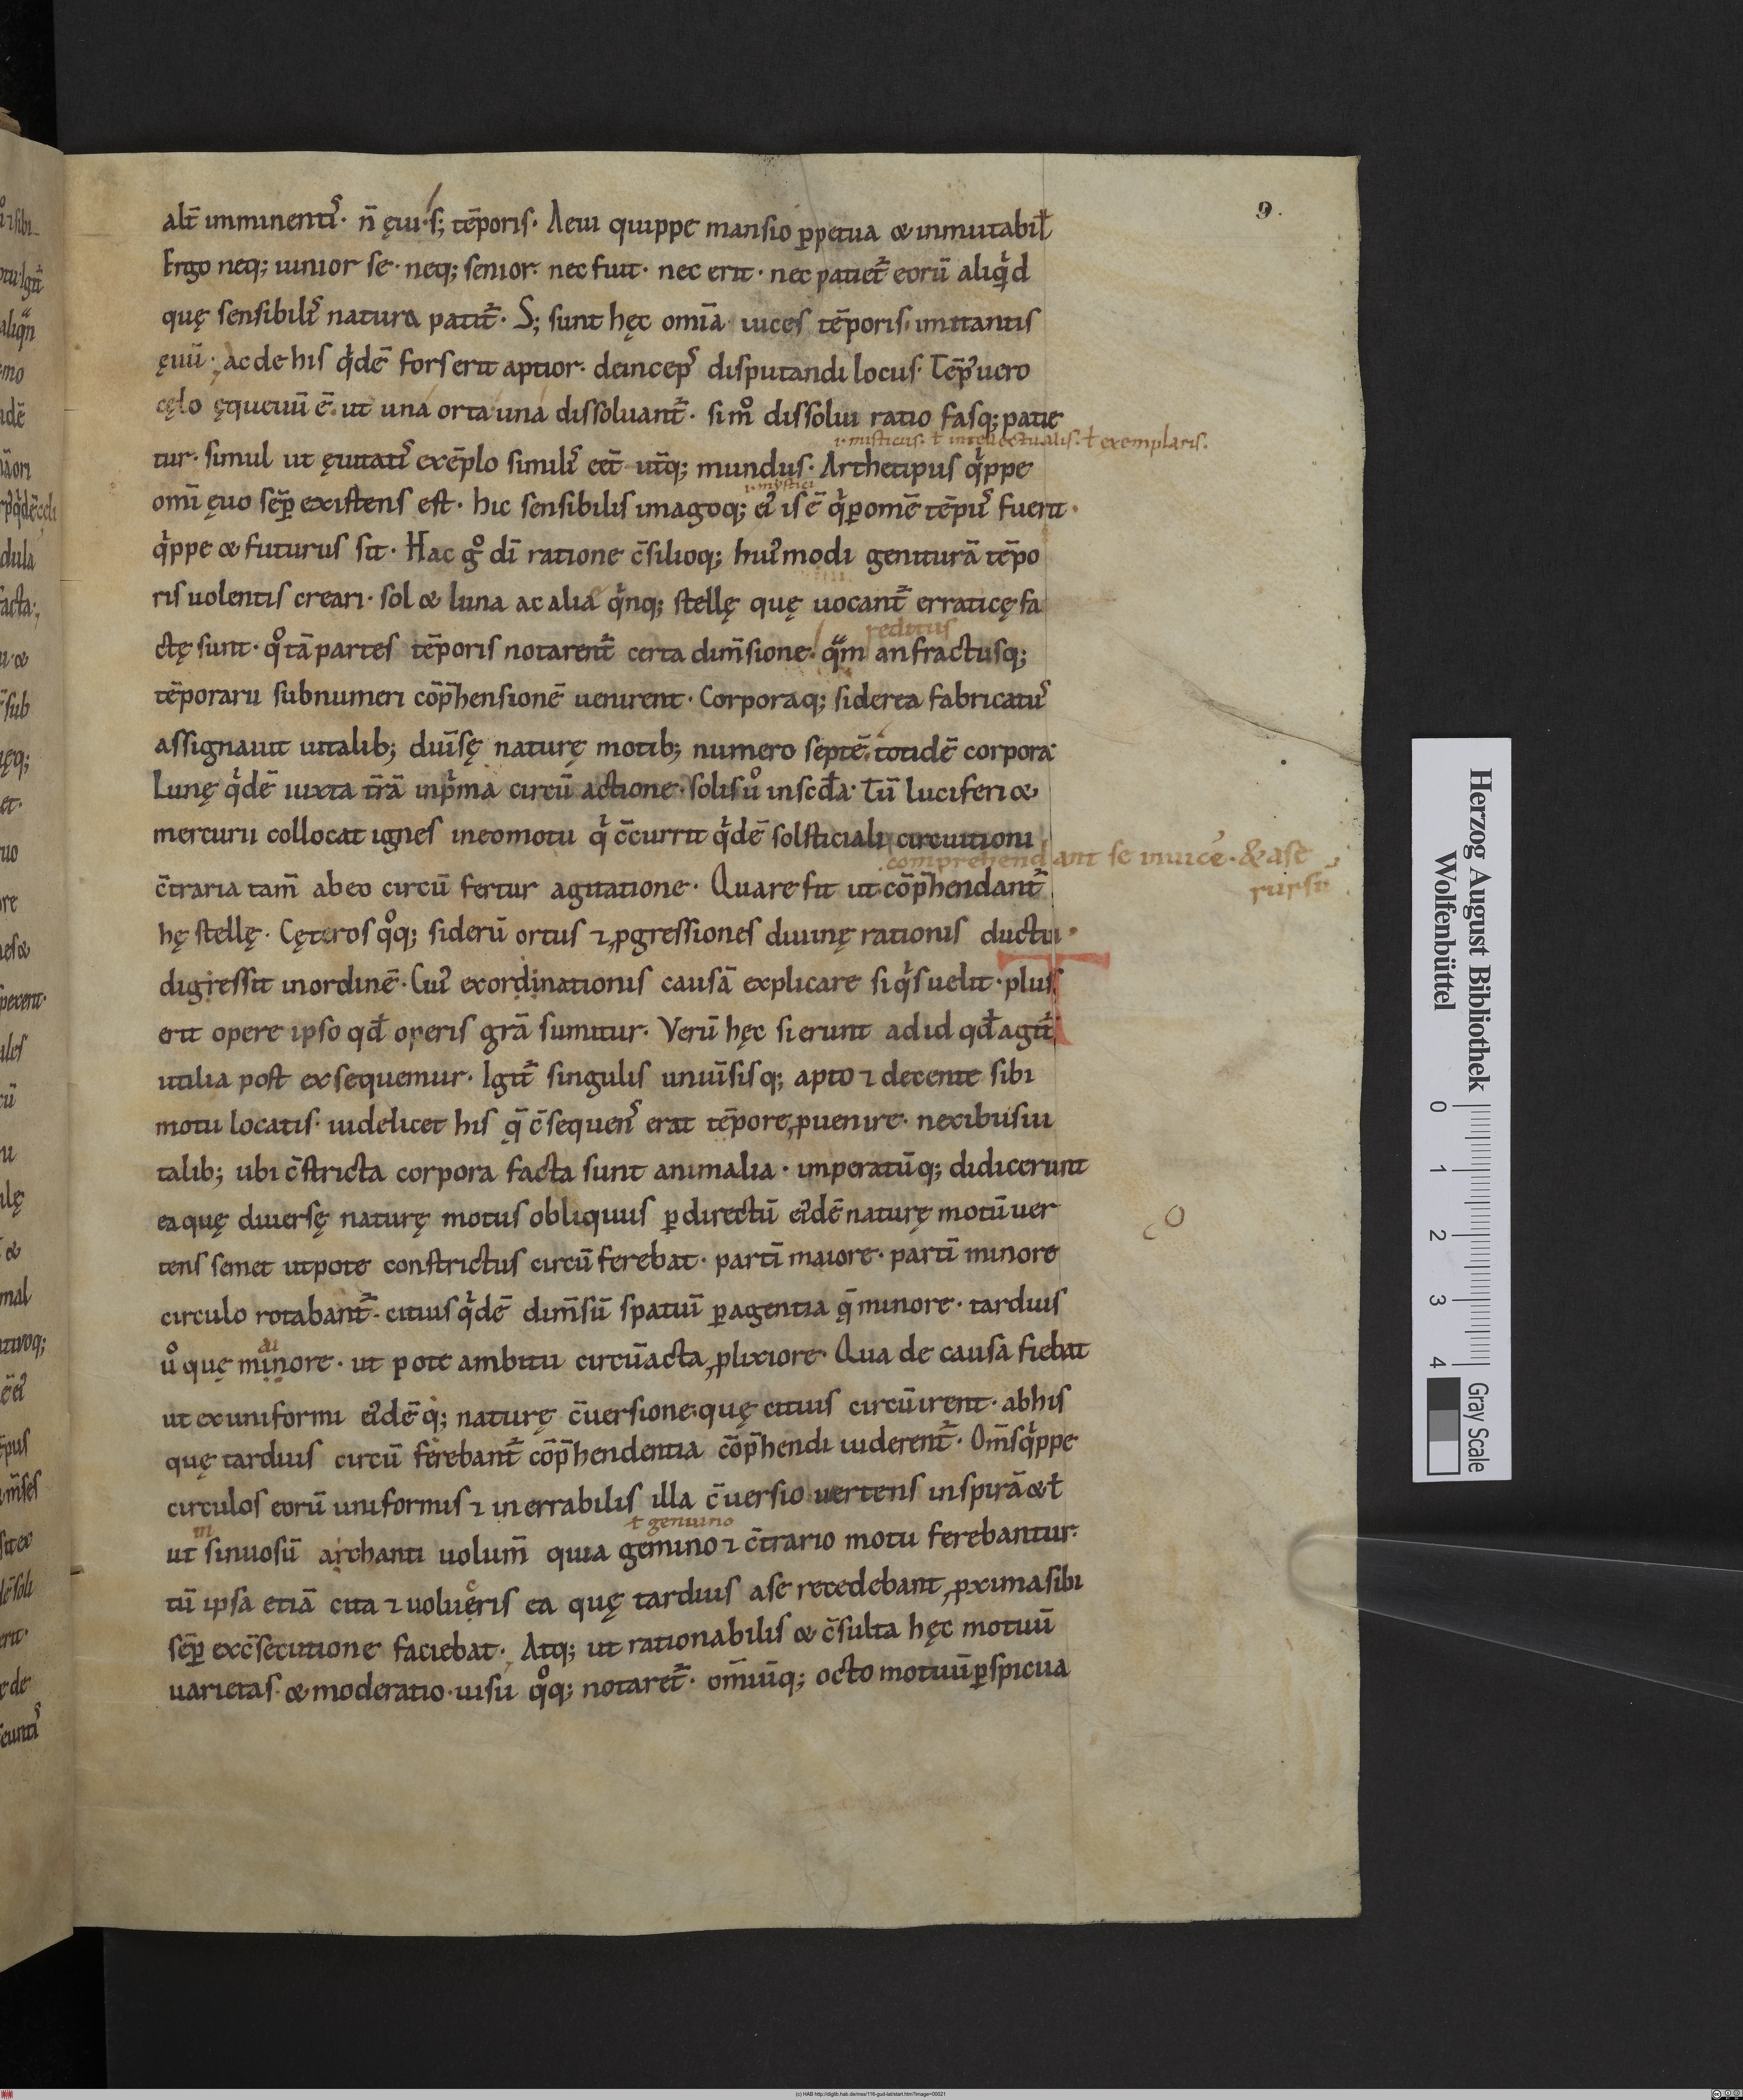 9.
alt̄ imminentiꝰ· n̄ ęui· s; tēporis· Aeui quippe mansio ꝑpetua & inmutabiƚ
Ergo neq; iunior se· neq; senior· nec fuit· nec erit· nec patiet᷑ eorū aliq̇d
quę sensibilīs natura patit᷑· S; sunt hęc omīa uices tēporis, imitantis
ęuū· ac de his q̇dē fors erit aptior· deincepꝰ disputandi locus· Tēpꝰ uero
cęlo ęqueuū ē· ut una orta una dissoluant᷑· simͦ dissolui ratio fasq; patie
.i. misticus· ƚ intellectualis· ƚ exemplaris·
tur· simul ut ęuitatiꝰ exēplo similiꝰ eēt utq̄; mundus· Archetipus q̇ppe
.i. mystici
omī ęuo sēꝑ existens est· hic sensibilis imagoq; eiꝰ is ē q̇ ꝑ omē tēpꝰ fuerit·
q̇ppe & futurus sit· Hac gͦ dī ratione c̄silioq; huiꝰmodi geniturā tēpo
ris uolentis creari· sol & luna ac alia q̇nq; stellę quę uocant᷑ erraticę fa
reditus
ctę sunt· qͦ tā partes tēporis notarent᷑ certa dim̄sione· qm̄ anfractusq;
tēporarii sub numeri cōp̄hensionē uenirent· Corporaq; siderea fabricatuꝰ
assignauit uitalib; duīsę naturę motib; numero septē· totidē corpora
Lunę q̇dē iuxta t̄rā in ṗma circū actione· solis uͦ in scđa· Tū luciferi &
mercurii collocat ignes in eo motu q̇ c̄currit q̇dē solsticiali circuitioni
comprehendant se inuicē· & a se
rursū
c̄traria tam̄ ab eo circū fertur agitatione· Quare fit ut cōp̄hendant᷑
hę stellę· Cęteros qͦq; siderū ortus ⁊ ꝓgressiones diuinę rationis ductu·
digressit in ordinē· Cuiꝰ exordinationis causā explicare si q̇s uelit· plus
erit opere ipso qđ operis grā sumitur· Verū hęc si erunt ad id qđ agit᷑
utilia post exsequemur· Igit᷑ singulis uniūsisq; apto ⁊ decente sibi
motu locatis· uidelicet his q̄ c̄sequenꝰ erat tēpore ꝓuenire· nexibus ui
talib; ubi c̄stricta corpora facta sunt animalia· imperatūq; didicerunt
ea quę diuersę naturę motus obliquus ꝑ directū eiꝰdē naturę motū uer
tens semet utpote constrictus circū ferebat· partī maiore· partī minore
circulo rotabant᷑· citius q̇dē dim̄sū spatiū ꝑagentia q̄ minore· tarduis
ai
uͦ quę minore· ut pote ambitu circūacta ꝓlixiore· Qua de causa fiebat
ut ex uniformi eiꝰdēq̇; naturę c̄uersione quę citius circūirent· ab his
quę tardius circū ferebant᷑ cōp̄hendentia cōp̄hendi uiderent᷑· Om̄s q̇ppe
circulos eorū uniformis ⁊ inerrabilis illa c̄uersio uertens in spirā & ƚ
in
ƚ genuino
ut sinuosū archanti uolum̄ quia gemino ⁊ c̄trario motu ferebantur·
tū ipsa etiā cita ⁊ uolueris ea quę tardius a se recedebant ꝓxima sibi
sēꝑ exc̄secutione faciebat· Atq; ut rationabilis & c̄sulta hęc motuū
uarietas· & moderatio· uisu qͦq; notaret᷑· om̄iūq; octo motuū ꝑspicua
Herzog August Bibliothek
Wolfenbüttel
0 1 2 3 4
Gray Scale
(c) HAB http://diglib.hab.de/mss/116-gud-lat/start.htm?image=00021